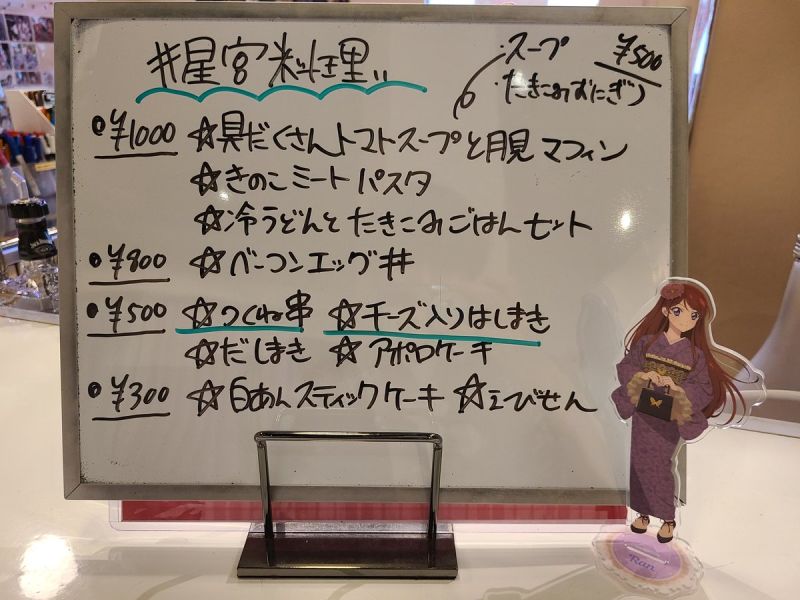 #星宮料理
・スープ ¥500
・たきこみおにぎり
・¥1000 ☆具だくさんトマトスープと月見マフィン
☆きのこミートパスタ
☆冷うどんとたきこみごはんセット
・¥800 ☆ベーコンエッグ丼
・¥500 ☆つくね串 ☆チーズ入りはしまき
☆だしまき ☆アポロケーキ
・¥300 ☆白あんスティックケーキ ☆えびせん
Ran